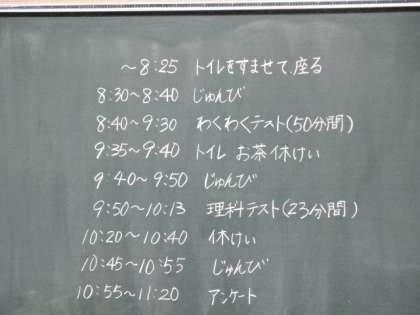 ～8:25 トイレをすませて、座る
8:30～8:40 じゅんび
8:40～9:30 わくわくテスト(50分間)
9:35～9:40 トイレ お茶休けい
9:40～9:50 じゅんび
9:50～10:13 理科テスト(23分間)
10:20～10:40 休けい
10:45～10:55 じゅんび
10:55～11:20 アンケート